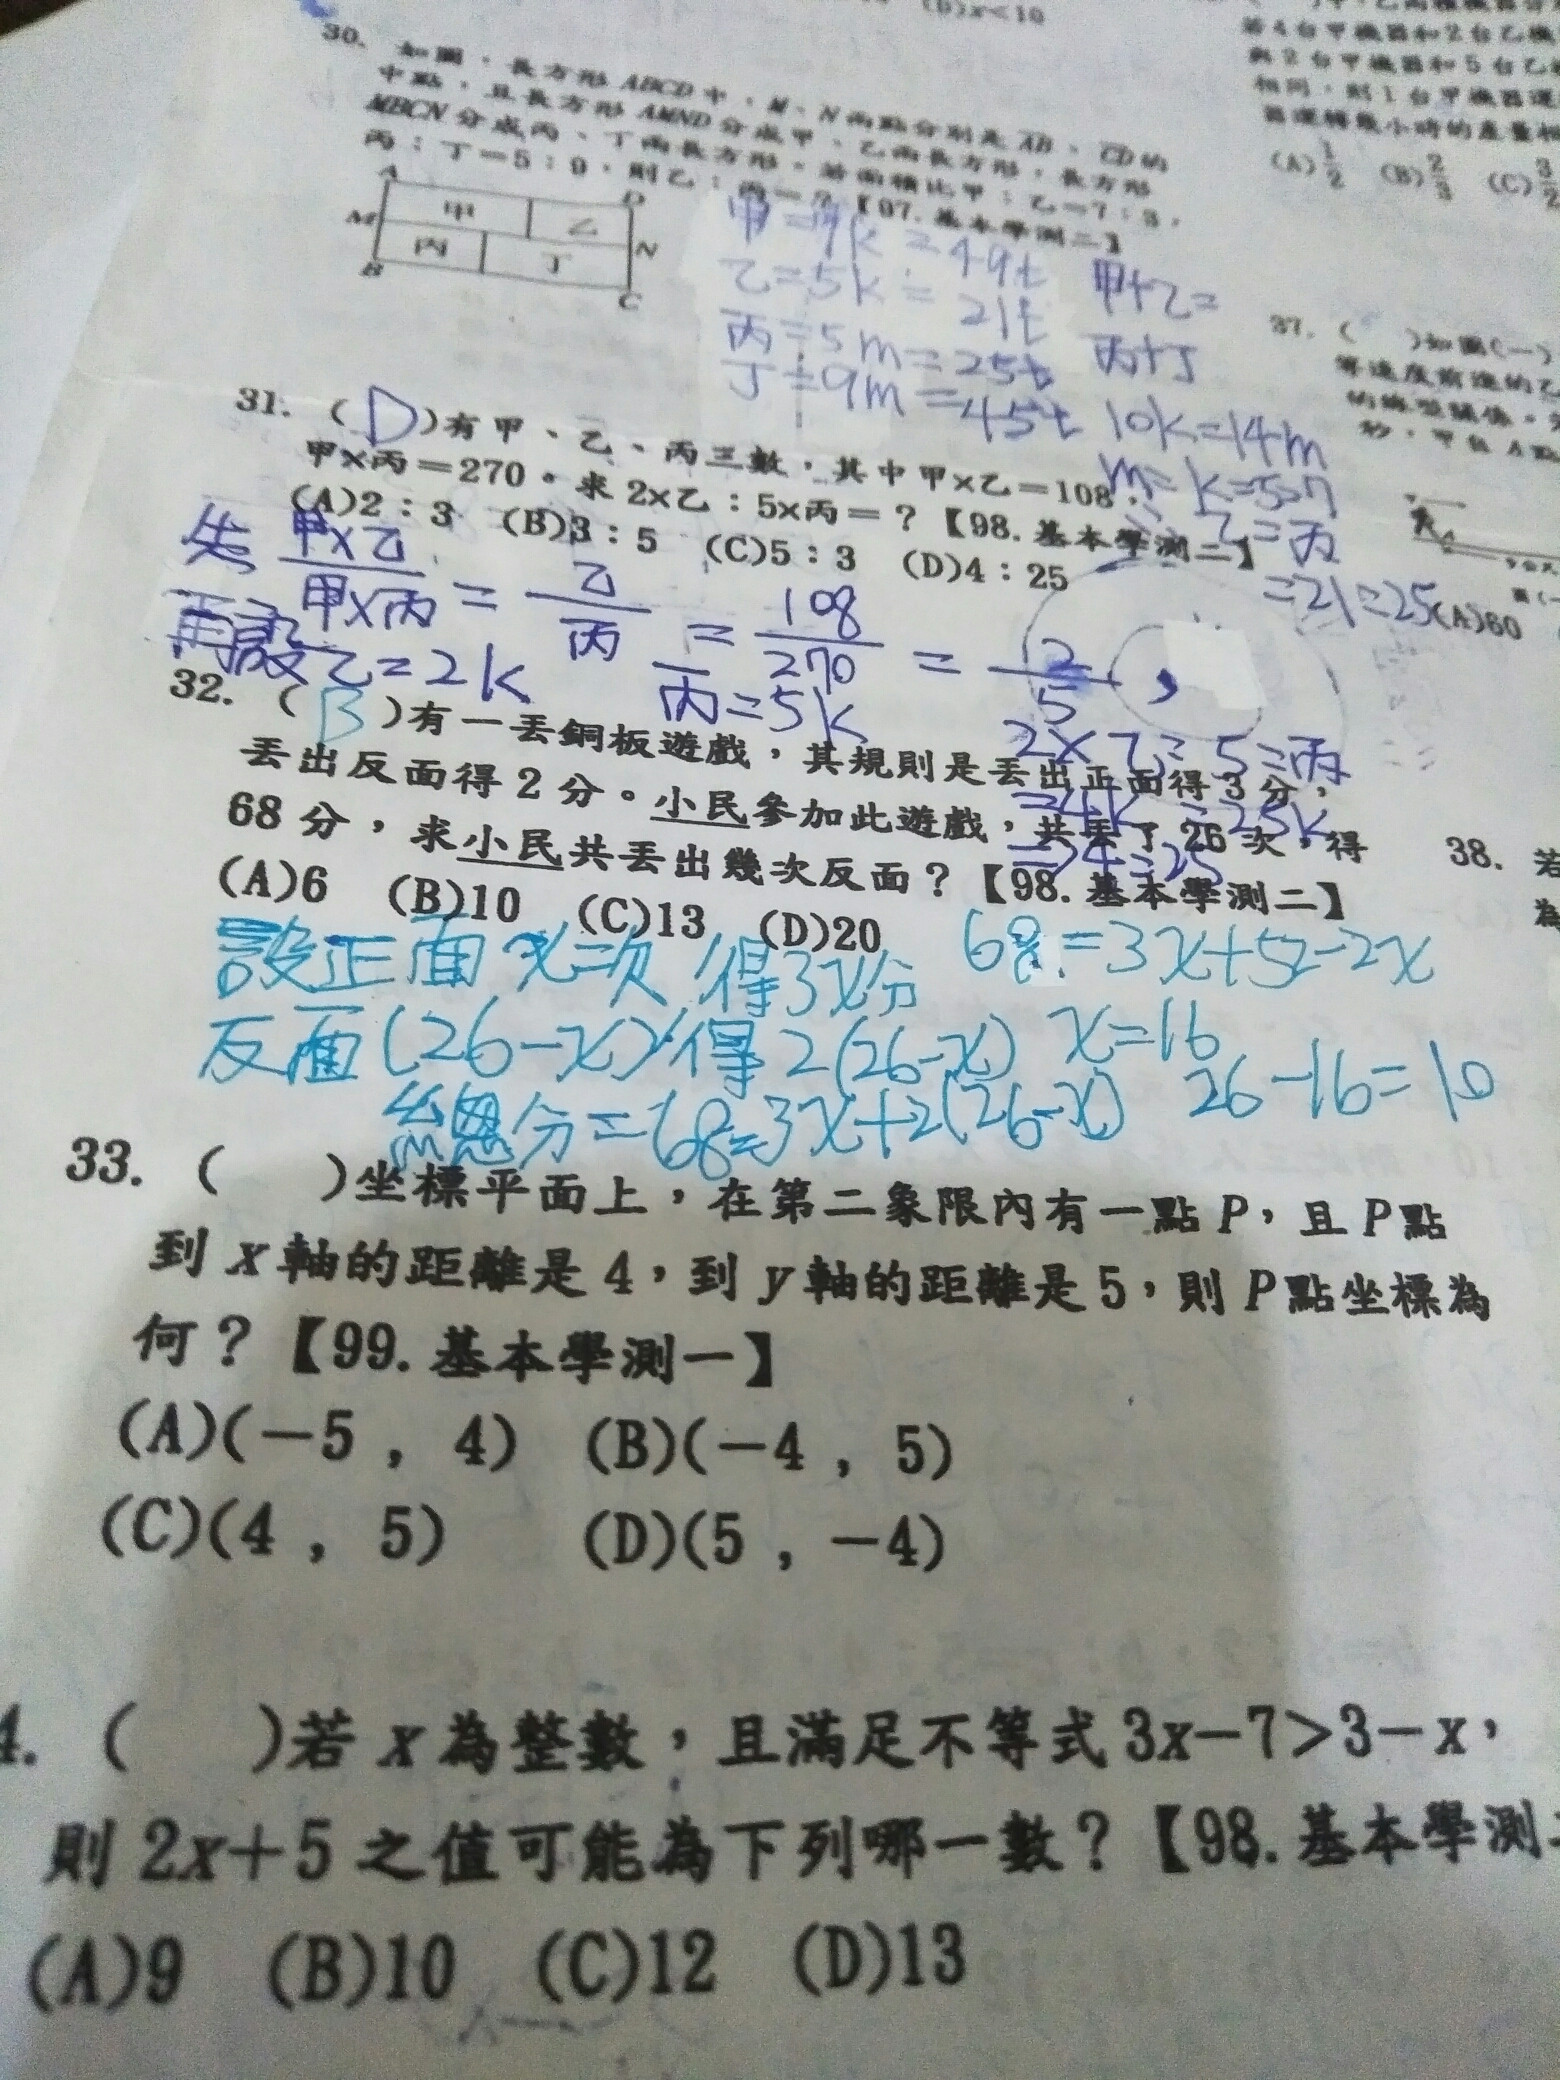 (D)x<10
30. 如圖，長方形ABCD中，M、N兩點分別是AB、CD的
中點，且長方形AMND分成甲、乙兩長方形，長方形
MBCN分成丙、丁兩長方形。若面積比甲：乙＝7：3，
丙：丁＝5：9，則乙：丙＝？【97.基本學測二】
A
D
甲
乙
M
N
丙
丁
B
C
甲=7k=49t
乙=5k=21t
丙=5m=25t
丁=9m=45t
甲+乙=
丙+丁
10k=14m
31. (D)有甲、乙、丙三數，其中甲×乙＝108，
甲×丙＝270。求2×乙：5×丙＝？【98.基本學測二】
(A)2：3 (B)3：5 (C)5：3 (D)4：25
乙=丙
=21=25
先 甲×乙/甲×丙 = 乙/丙 = 108/270 = 2/5，
再設乙=2k 丙=5k
32. (B)有一丟銅板遊戲，其規則是丟出正面得3分，
丟出反面得2分。小民參加此遊戲，共丟了26次，得
68分，求小民共丟出幾次反面？【98.基本學測二】
(A)6 (B)10 (C)13 (D)20
設正面x次 得3x分 68=3x+52-2x
反面(26-x) 得2(26-x) x=16
總分=68=3x+2(26-x) 26-16=10
33. ( )坐標平面上，在第二象限內有一點P，且P點
到x軸的距離是4，到y軸的距離是5，則P點坐標為
何？【99.基本學測一】
(A)(－5，4) (B)(－4，5)
(C)(4，5) (D)(5，－4)
4. ( )若x為整數，且滿足不等式3x－7＞3－x，
則2x＋5之值可能為下列哪一數？【98.基本學測
(A)9 (B)10 (C)12 (D)13
若4台甲機器和2台乙機
與2台甲機器和5台乙
相同，則1台甲機器運
器運轉幾小時的產量
(A)1/2 (B)2/3 (C)3/2
37. ( )如圖(一)
(A)60
38. 若
為